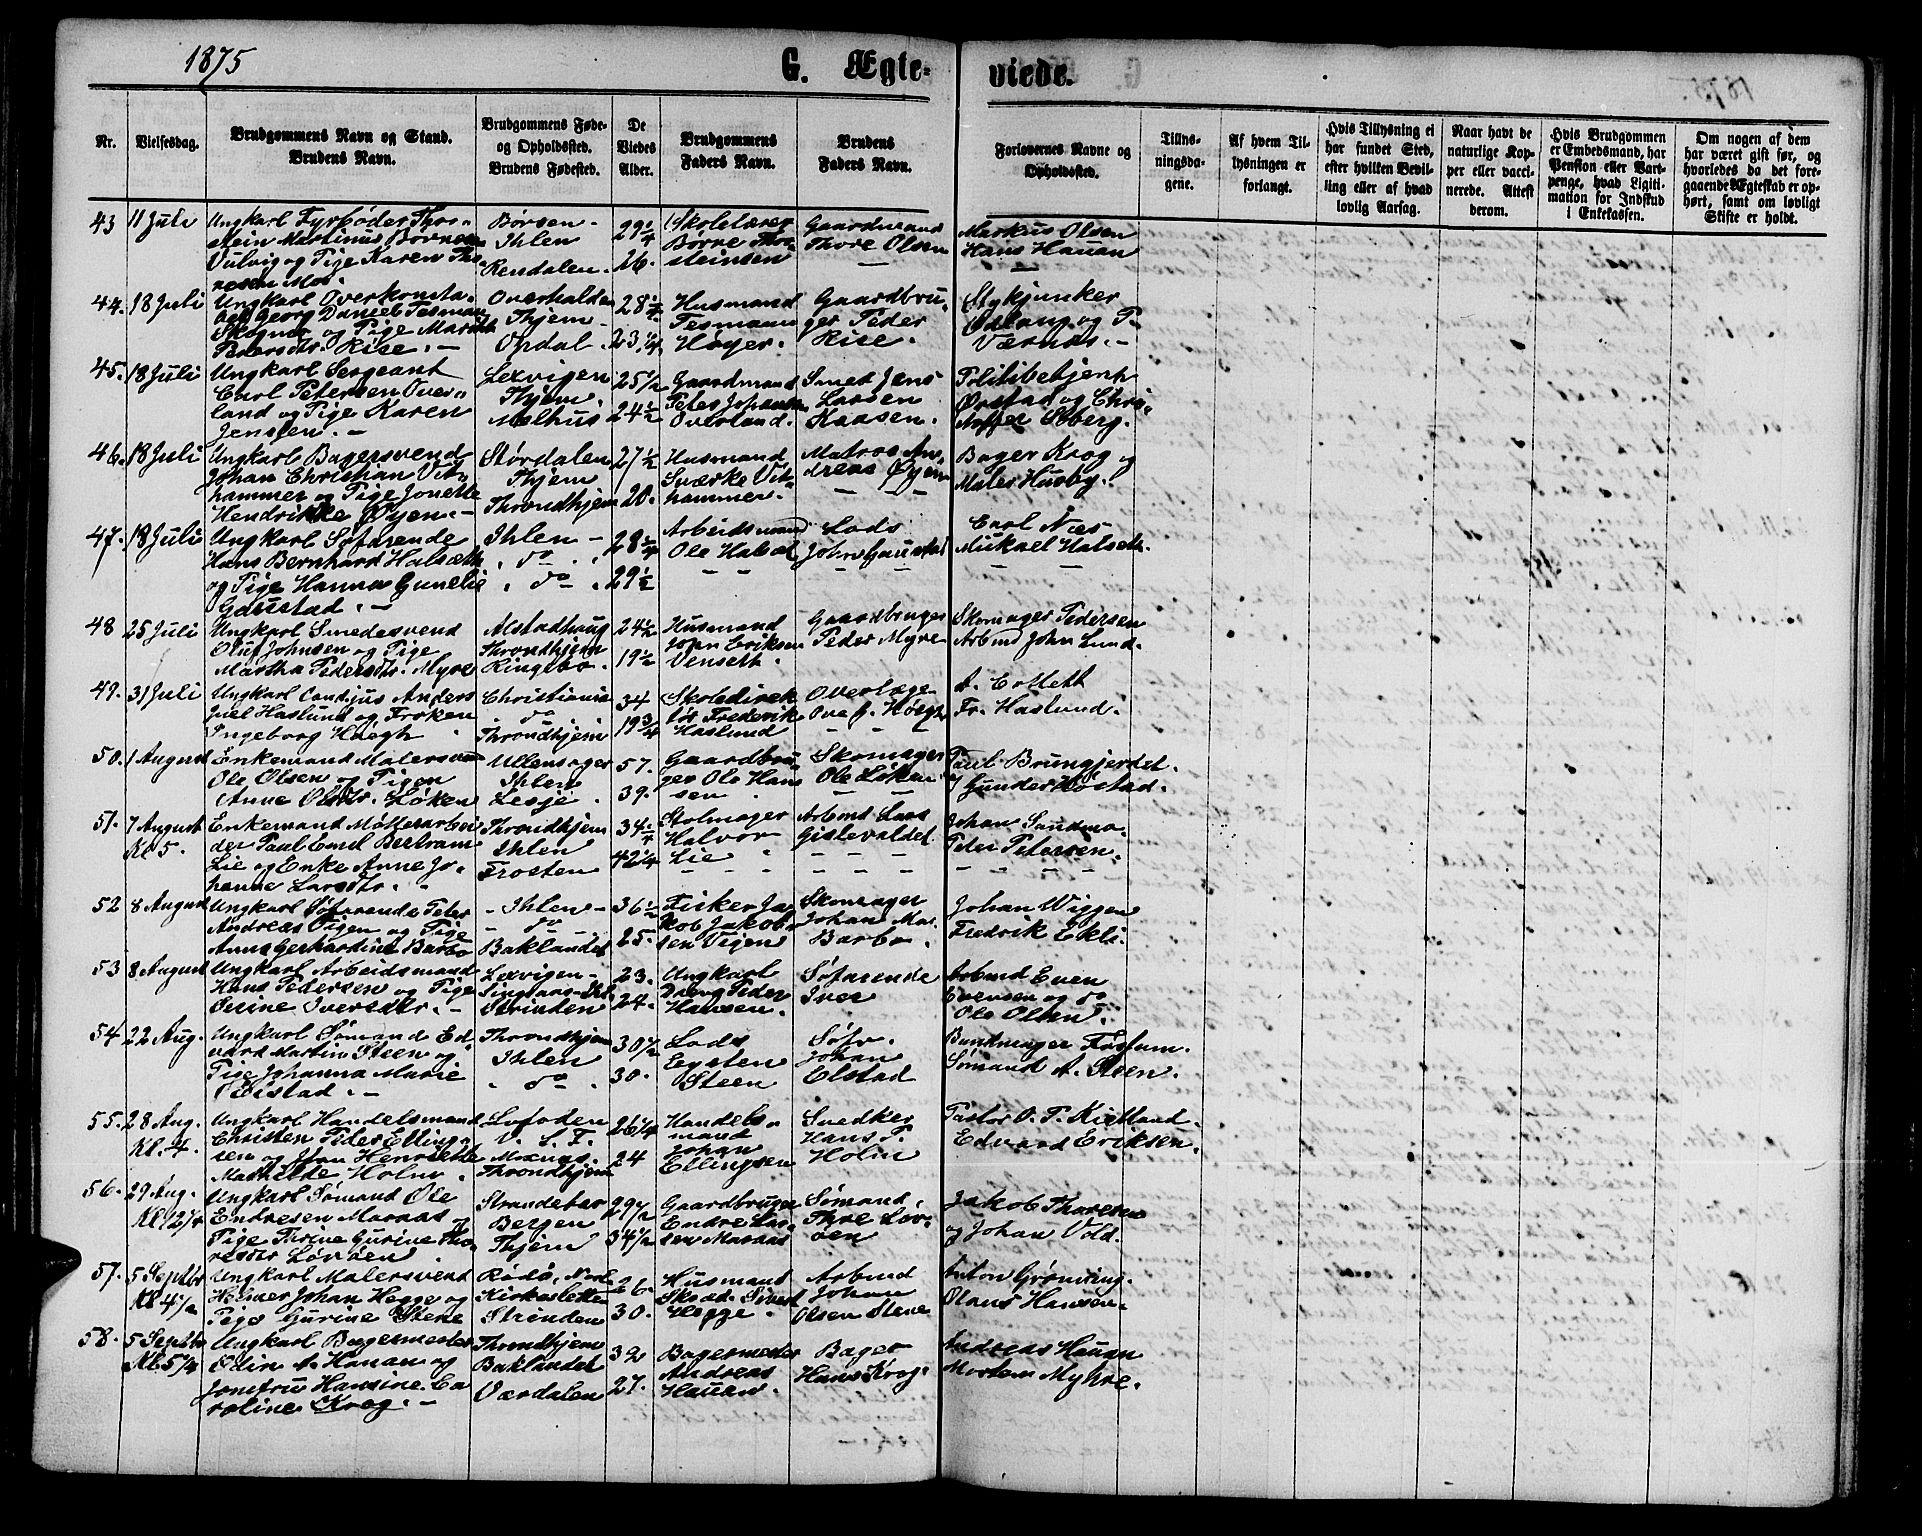 1875
G. Ægte-
viede.
Nr.
Vielsesdag.
Brudgommens Navn og Stand.
Brudens Navn.
Brudgommens Føde-
og Opholdssted.
Brudens Fødested.
De
Viedes
Alder.
Brudgommens
Faders Navn.
Brudens
Faders Navn.
Forlovernes Navne og
Opholdssted.
Tillys-
ningsda-
gene.
Af hvem Til-
lysningen er
forlangt.
Hvis Tillysning ei
har fundet Sted,
efter hvilken Bevil-
ling eller af hvad
lovlig Aarsag.
Naar havt de
naturlige Kop-
per eller vacci-
nerede. Attest
derom.
Hvis Brudgommen
er Embedsmand, har
Pension eller Vart-
penge, hvad Ligiti-
mation for Indskud
i Enkekassen.
Om nogen af dem
har været gift før, og
hvorledes da det fore-
gaaende Ægteskab er op-
hørt, samt om lovligt
Skifte er holdt.
43
11 Juli
Ungkarl Fyrbøder Thor-
stein Martinus Bornesen
Vulvig og Pige Karen Tho-
resen Moe.
Børsen -
Ihlen
Rendalen.
29 1/4
26.
Skolelærer
Borre Thor-
steinsen
Gaardmand
Thore Olsen
Markus Olsen
Hans Hauan
44.
18 Juli
Ungkarl Overkonsta-
bel Georg Daniel Tesmann
Skogmo og Pige Marith
Pedersdtr. Rise. -
Overhalden
Thjem -
Opdal.
28 1/4
23 1/4
Husmand
Tesmann
Høyer.
Gaardbru-
ger Peder
Rise.
Stykjunker
Ødlaug og P.
Værnæs. -
45.
18 Juli
Ungkarl Sergeant
Carl Petersen Over-
land og Pige Karen
Jensen. -
Lexvigen
Thjem.
Melhus
25 1/2
24 1/2
Gaardmand
Peter Johansen
Overland.
Smed Jens
Larsen
Kaasen.
Politibetjent
Ørstad og Chri-
stoffer Solberg.
46.
18 Juli
Ungkarl Bagersvend
Johan Christian Vit-
hammer og Pige Jonette
Hendrikke Øyen. -
Størdalen
Thjem
Throndhjem
27 1/2
20.
Husmand
Sværke Vit-
hammer.
Matros An-
dreas Øyen
Bager Krog og
Maler Husby.
47.
18 Juli
Ungkarl Søfarende
Hans Bernhard Halseth
og Pige Hanna Gunelie
Gaustad. -
Ihlen -
do
do
28 1/4
29 1/2
Arbeidsmand
Ole Halset
Lods
John Gaustad
Carl Næs
Mickael Halseth.
48
25 Juli
Ungkarl Smedesvend
Oluf Johnsen og Pige
Martha Pedersdtr. Myre
Alstadhaug
Throndhjem
Ringebo.
24 1/2
19 1/2
Husmand
John Eriksen
Venseth.
Gaardbruger
Peder Myre
Skomager Pedersen
Arbmd John Lund.
49.
31 Juli
Ungkarl Candjus Anders
Juel Haslund og Frøken
Ingeborg Høegh
Christiania
do
Throndhjem
34
19 3/4
Skoledirek-
tør Frederik
Haslund
Overlæge
Ove J. Høegh
A. Collett
Fr. Haslund.
50.
1 August
Enkemand Malersvend
Ole Olsen og Pigen
Anne Olsdtr. Løken
Ullensager
Ihlen
Lesje.
57.
39.
Gaardbru-
ger Ole Han-
sen
Skomager
Ole Løken
Paul Brungjerdet.
Gunder Kostad.
51.
7 August
Kl 5.
Enkemand Møllerarbei-
der Paul Emil Bertram
Lie og Enke Anne Jo-
hanne Larsdtr.
Throndhjem
Ihlen
Frosten
34 1/4
42 1/4
Stolmager
Halvor
Lie
Arbmd Lars
Gistevaldet
Johan Sandmo.
Peder Petersen.
52
8 August
Ungkarl Søfarende Peter
Andreas Vigen og Pige
Anna Gerhardine Barbo
- Ihlen -
do
Baklandet
36 1/2
25.
Fisker Ja-
kob Jakob-
sen Vigen
Skomager
Johan Mar.
Barbo.
Johan Wiggen
Fredrik Ekli.
53
8 August
Ungkarl Arbeidsmand
Hans Pedersen og Pige
Oline Iversdtr. -
Lexvigen -
Strinden
23.
24.
Ungkarl
Dreng Peder
Hansen.
Søfarende
Iver
Arbmd Even
Evensen og do
Ole Olsen.
54
22 Aug.
Ungkarl Sømand Ed-
vard Martin Steen og
Pige Johanna Marie
Elstad. -
Throndhjem
Ihlen
do
30 1/2
30.
Lods
Eysten
Steen
Søfr.
Johan
Elstad
Buntmager Fossum.
Sømand A. Steen.
55.
28 Aug.
Kl. 4.
Ungkarl Handelsmand
Christen Peder Elling-
sen og Jfru Henriette
Mathilde Holm.
Lofoden
Throndhjem
26 1/4
24
Handels-
mand
Johan
Ellingsen
Snedker
Hans P.
Holm
Pastor O. P. Kietland.
Edvard Eriksen.
56.
29 Aug.
Kl 12 1/4
Ungkarl Sømand Ole
Endresen Maraas
Pige Thrine Gurine Tho-
resdtr Løvøen
Strandebar
Bergen
Thjem
29 1/2
34 1/2
Gaardbruger
Endre Lar-
sen Maraas
Sømand
Thore Løv-
øen
Jakob Thoresen
og Johan Vold.
57.
5 Septbr
Kl 4 1/2
Ungkarl Malersvend
Heimer Johan Hegge og
Pige Gurine Stene
Rødø, Nord-
Kirkesletten
Strinden
26.
30.
Husmand
Skræd. Sivert
Hegge.
Arbmd
Johan
Olsen Stene
Anton Grønning.
Olaus Hansen.
58.
5 Septbr
Kl 5 1/4
Ungkarl Bagermester
Odin A. Hauan og
Jomfru Hansine Ca-
roline Krog. -
Throndhjem
Baklandet
Værdalen
32
27.
Bagermester
Andreas
Hauan.
Bager
Hans Krog.
Andreas Hauan
Morten Myhre.